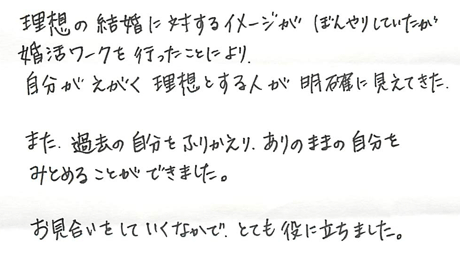 理想の結婚に対するイメージが ぼんやりしていたが
婚活ワークを行ったことにより、
自分がえがく理想とする人が明確に見えてきた.
また、過去の自分をふりかえり、ありのままの自分を
みとめることができました。
お見合いをしていくなかで、とても役に立ちました。